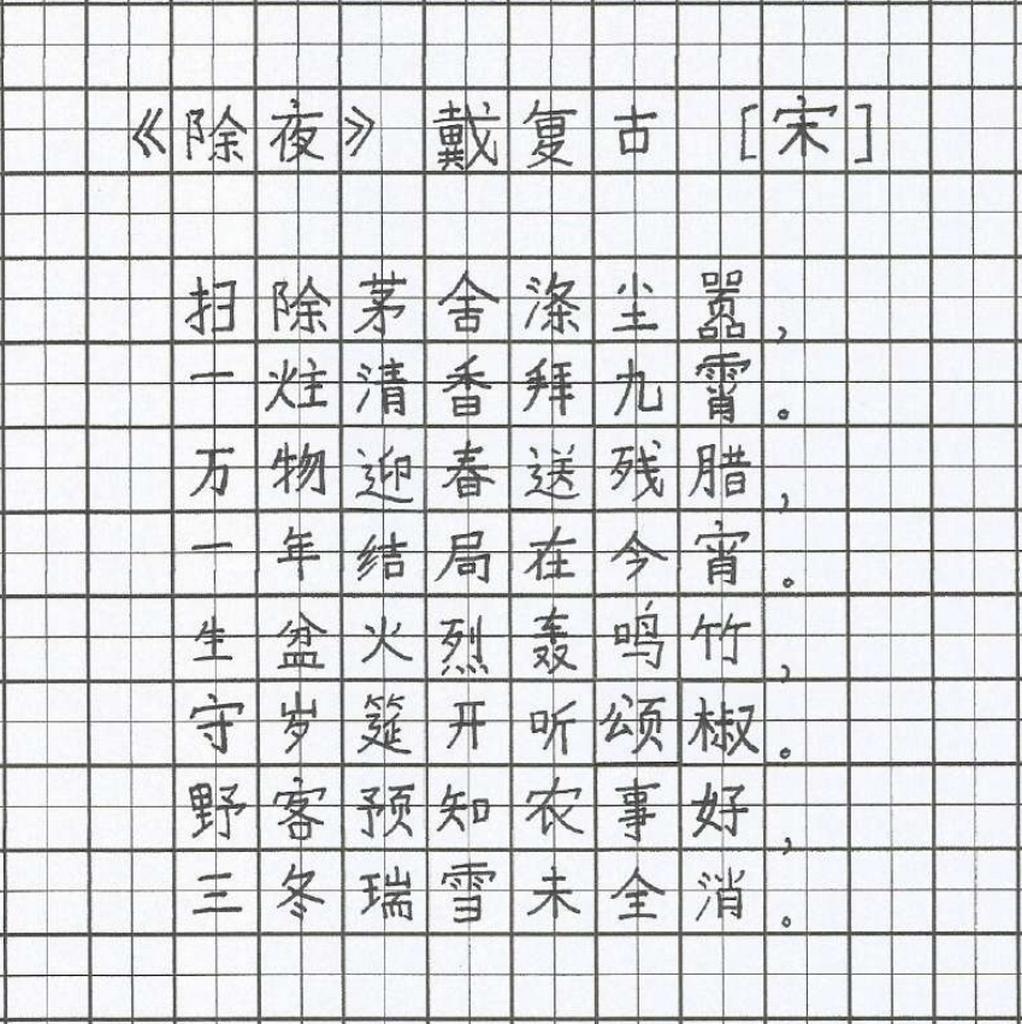 《除夜》 戴复古 [宋]
扫除茅舍涤尘嚣,
一炷清香拜九霄。
万物迎春送残腊,
一年结局在今宵。
生盆火烈轰鸣竹,
守岁筵开听颂椒。
野客预知农事好,
三冬瑞雪未全消。